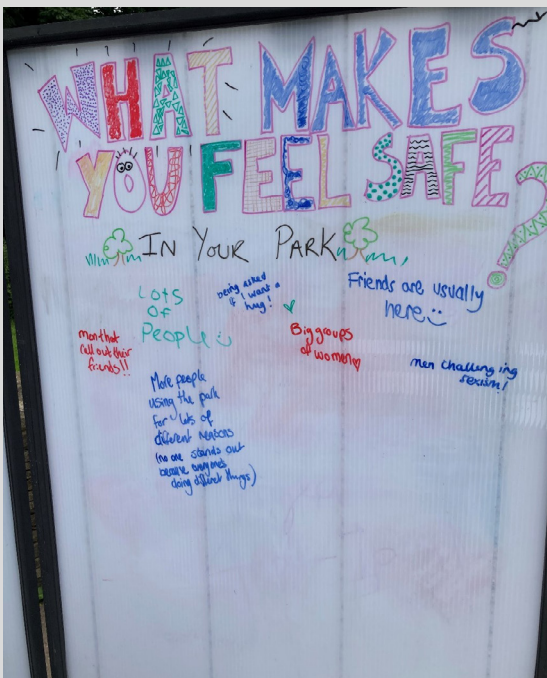 WHAT MAKES
YOU FEEL SAFE?
IN YOUR PARK
Lots
Of
People
being asked
if I want a
hug!
Friends are usually
here
men that
call out their
friends!!
Big groups
of women
men challenging
sexism!
More people
using the park
for lots of
different reasons
(no one stands out
because everyones
doing different things)